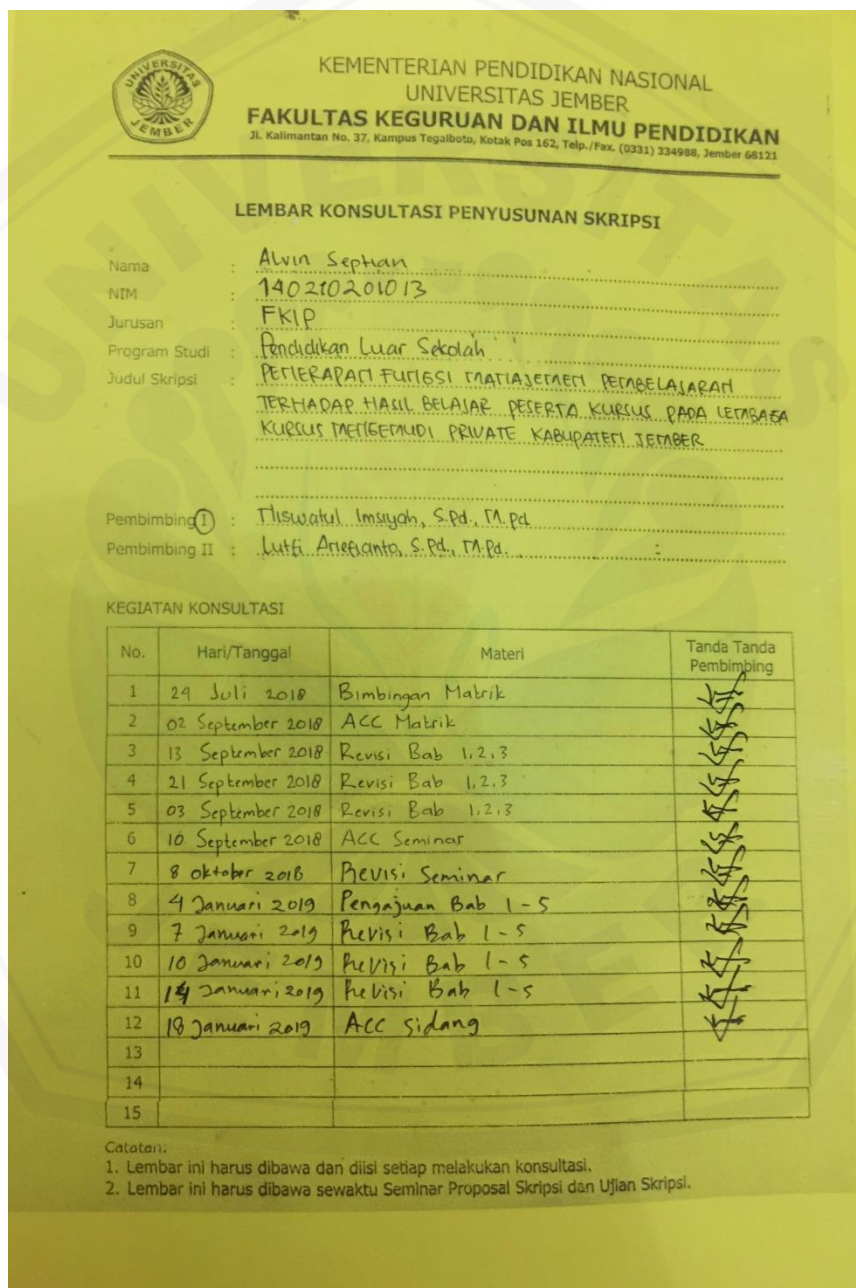 UNIVERSITAS
JEMBER
KEMENTERIAN PENDIDIKAN NASIONAL
UNIVERSITAS JEMBER
FAKULTAS KEGURUAN DAN ILMU PENDIDIKAN
Jl. Kalimantan No. 37, Kampus Tegalboto, Kotak Pos 162, Telp./Fax. (0331) 334988, Jember 68121
LEMBAR KONSULTASI PENYUSUNAN SKRIPSI
Nama : Alvin Septian
NIM : 140210201013
Jurusan : FKIP
Program Studi : Pendidikan Luar Sekolah
Judul Skripsi : PENERAPAN FUNGSI MANAJEMEN PEMBELAJARAN
TERHADAP HASIL BELAJAR PESERTA KURSUS PADA LEMBAGA
KURSUS MENGEMUDI PRIVATE KABUPATEN JEMBER
Pembimbing I : Niswatul Imsiyah, S.Pd., M.Pd
Pembimbing II : Lutfi Ariefianto, S.Pd., M.Pd.
KEGIATAN KONSULTASI
No. Hari/Tanggal Materi Tanda Tanda Pembimbing
1 24 Juli 2018 Bimbingan Matrik
2 02 September 2018 ACC Matrik
3 13 September 2018 Revisi Bab 1,2,3
4 21 September 2018 Revisi Bab 1,2,3
5 03 September 2018 Revisi Bab 1,2,3
6 10 September 2018 ACC Seminar
7 8 oktober 2018 Revisi Seminar
8 4 Januari 2019 Pengajuan Bab 1-5
9 7 Januari 2019 Revisi Bab 1-5
10 10 Januari 2019 Revisi Bab 1-5
11 14 Januari 2019 Revisi Bab 1-5
12 18 Januari 2019 ACC Sidang
13
14
15
Catatan:
1. Lembar ini harus dibawa dan diisi setiap melakukan konsultasi.
2. Lembar ini harus dibawa sewaktu Seminar Proposal Skripsi dan Ujian Skripsi.